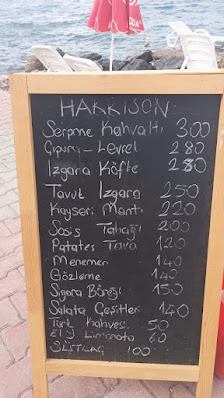 HARRISON
Serpme Kahvaltı 300
Çipura - Levrel 280
Izgara Köfte 280
Tavuk Izgara 250
Kayseri Mantı 220
Sosis Tabağı 200
Patates Tava 120
Menemen 140
Gözleme 140
Sigara Böreği 150
Salata Çeşitleri 140
Türk Kahvesi 50
El Y. Limonata 60
SÜTLAÇ 100